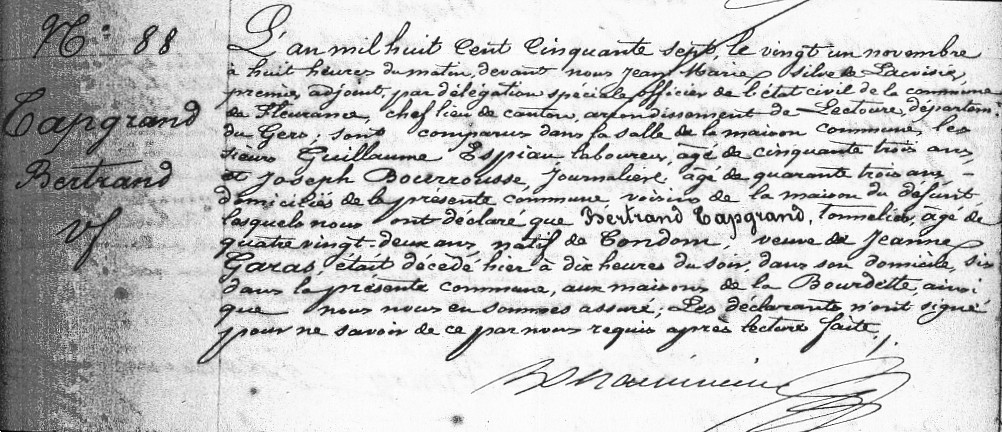 N.º 88
Capgrand
Bertrand
vf
L'an mil huit Cent Cinquante sept, le vingt un novembre
à huit heures du matin, devant nous Jean Marie silve de Lavoisie,
premier adjoint, par délégation spéciale officier de l'état civil de la commune
de Fleurance, chef lieu de canton, arrondissement de Lectoure, départem.
du Gers; sont comparus dans la salle de la maison commune, les
sieurs Guillaume Espiau laboureur, agé de cinquante trois ans,
et Joseph Bourrousse, Journalier, agé de quarante trois ans -
domiciliés de la présente commune, voisins de la maison du défunt
lesquels nous ont déclaré que Bertrand Capgrand, tonnelier, agé de
quatre vingt-deux ans, natif de Condom, veuve de Jeanne
Garas, était décédé hier à dix heures du soir, dans son domicile, sis
dans la présente commune, aux maisons de la Bourdette, ainsi
que nous nous en sommes assuré; Les déclarants n'ont signé
pour ne savoir de ce par nous requis après lecture faite./.